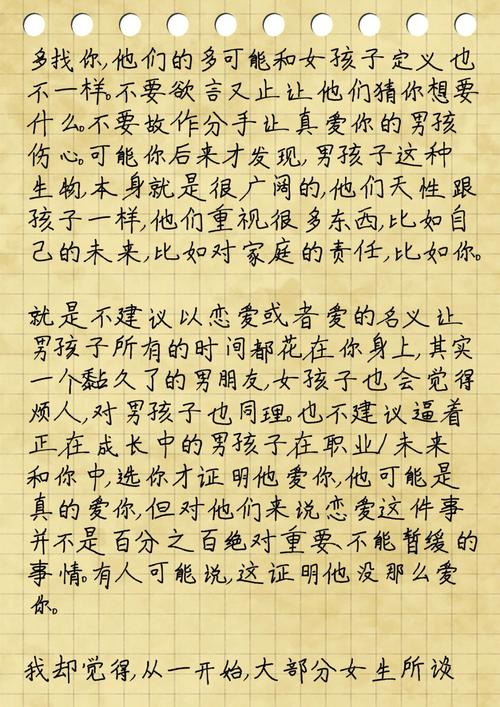 多找你,他们的多可能和女孩子定义也
不一样。不要欲言又止让他们猜你想要
什么。不要故作分手让真爱你的男孩
伤心。可能你后来才发现,男孩子这种
生物,本身就是很广阔的,他们天性跟
孩子一样,他们重视很多东西,比如自
己的未来,比如对家庭的责任,比如你。
就是不建议以恋爱或者爱的名义让
男孩子所有的时间都花在你身上,其实
一个黏久了的男朋友,女孩子也会觉得
烦人,对男孩子也同理。也不建议逼着
正在成长中的男孩子在职业/未来
和你中,选你才证明他爱你,他可能是
真的爱你,但对他们来说恋爱这件事
并不是百分之百绝对重要、不能暂缓的
事情。有人可能说,这证明他没那么爱
你。
我却觉得,从一开始,大部分女生所谈